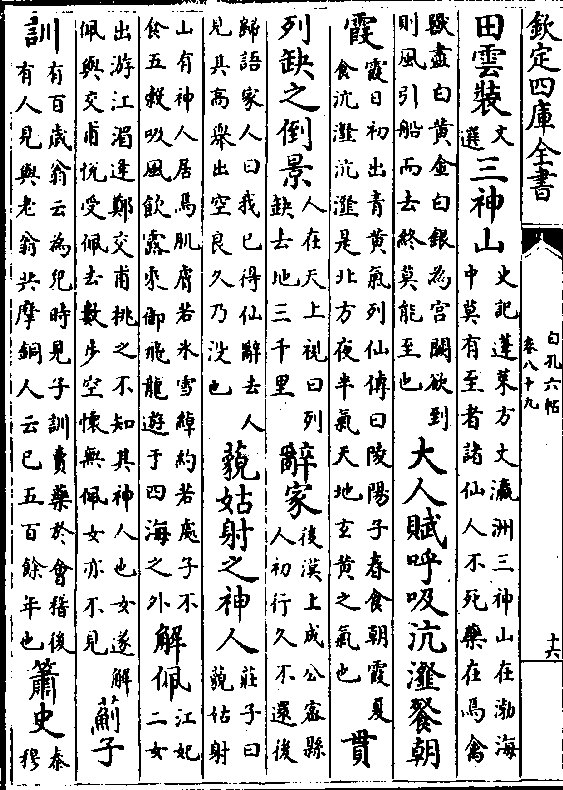 欽定四庫全書
白孔六帖
卷八十九
十六
田雲裝
文
選
三神山
史記蓬萊方丈瀛洲三神山在渤海
中莫有至者諸仙人不死藥在焉禽
獸盡白黃金白銀為宮闕欲到
則風引船而去終莫能至也
大人賦呼吸沆瀣餐朝
霞
霞日初出青黃氣列仙傳曰陵陽子春食朝霞夏
食沆瀣沆瀣是北方夜半氣天地玄黃之氣也
貫
列缺之倒景
人在天上視日列
缺去地三千里
辭家
後漢上成公宻縣
人初行久不還後
歸語家人曰我已得仙辭去人
見其高舉出空良久乃沒也
藐姑射之神人
莊子曰
藐姑射
山有神人居焉肌膚若氷雪綽約若處子不
食五穀吸風飲露乘御飛龍遊于四海之外
解佩
江妃
二女
出游江湄逢鄭交甫挑之不知其神人也女遂解
佩與交甫悅受佩去數步空懷無佩女亦不見
薊子
訓
有百歲翁云為兒時見子訓賣藥於會稽後
有人見與老翁共摩銅人云已五百餘年也
簫史
秦
穆